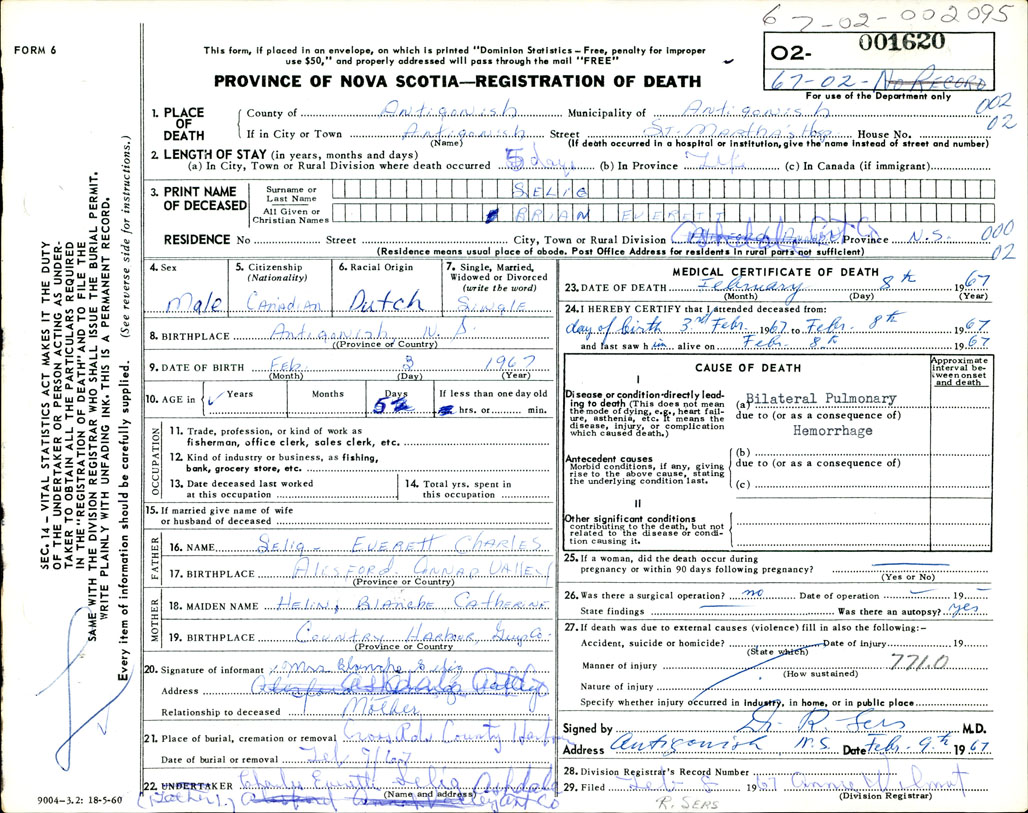 67-02-002095
FORM 6
This form, if placed in an envelope, on which is printed "Dominion Statistics – Free, penalty for improper
use $50," and properly addressed will pass through the mail "FREE"
02- 001620
67-02-No Record
For use of the Department only
PROVINCE OF NOVA SCOTIA—REGISTRATION OF DEATH
002
02
1. PLACE OF DEATH
County of Antigonish Municipality of Antigonish
If in City or Town Antigonish Street St. Martha's Hosp House No.
(Name) (If death occurred in a hospital or institution, give the name instead of street and number)
2. LENGTH OF STAY (in years, months and days)
(a) In City, Town or Rural Division where death occurred 5 days (b) In Province Life (c) In Canada (if immigrant)
3. PRINT NAME OF DECEASED
Surname or Last Name SELIG
All Given or Christian Names BRIAN EVERETT
RESIDENCE No Street City, Town or Rural Division Province N.S.
000
02
(Residence means usual place of abode. Post Office Address for residents in rural parts not sufficient)
4. Sex
Male
5. Citizenship
(Nationality)
Canadian
6. Racial Origin
Dutch
7. Single, Married,
Widowed or Divorced
(write the word)
Single
8. BIRTHPLACE Antigonish N. S.
(Province or Country)
9. DATE OF BIRTH Feb. 3 1967
(Month) (Day) (Year)
10. AGE in Years Months Days If less than one day old
5 hrs. or min.
OCCUPATION
11. Trade, profession, or kind of work as
fisherman, office clerk, sales clerk, etc.
12. Kind of industry or business, as fishing,
bank, grocery store, etc.
13. Date deceased last worked
at this occupation
14. Total yrs. spent in
this occupation
15. If married give name of wife
or husband of deceased
FATHER
16. NAME Selig - Everett Charles
17. BIRTHPLACE Alesford. Annap Valley
(Province or Country)
MOTHER
18. MAIDEN NAME Blanche Catherine
19. BIRTHPLACE Country Harbour, Guys Co.
(Province or Country)
20. Signature of informant Mrs Blanche Selig
Address Ashdale
Relationship to deceased Mother
21. Place of burial, cremation or removal Cross Rds County Harbour
Date of burial or removal Feb 9/67
22. UNDERTAKER Charles Everett Selig Ashdale
(Name and address)
(Father)
9004–3.2: 18-5-60
MEDICAL CERTIFICATE OF DEATH
23. DATE OF DEATH February 8th 1967
(Month) (Day) (Year)
24. I HEREBY CERTIFY that I attended deceased from:
day of birth 3rd Febr. 1967 to Febr. 8th 1967
and last saw him alive on Febr. 8th 1967
CAUSE OF DEATH
Approximate
interval be-
tween onset
and death
I
Disease or condition directly lead-
ing to death (This does not mean
the mode of dying, e.g., heart fail-
ure, asthenia, etc. It means the
disease, injury, or complication
which caused death.)
(a) Bilateral Pulmonary
due to (or as a consequence of)
Hemorrhage
Antecedent causes
Morbid conditions, if any, giving
rise to the above cause, stating
the underlying condition last.
(b)
due to (or as a consequence of)
(c)
II
Other significant conditions
contributing to the death, but not
related to the disease or condi-
tion causing it.
25. If a woman, did the death occur during
pregnancy or within 90 days following pregnancy?
(Yes or No)
26. Was there a surgical operation? no Date of operation 19
State findings Was there an autopsy? yes
27. If death was due to external causes (violence) fill in also the following:–
Accident, suicide or homicide? Date of injury 19
(State which)
Manner of injury 771.0
(How sustained)
Nature of injury
Specify whether injury occurred in industry, in home, or in public place
Signed by R Sers M.D.
Address Antigonish N.S. Date Febr. 9th 1967
28. Division Registrar's Record Number
29. Filed Feb 1967
(Division Registrar)
R. SERS
SEC. 14 – VITAL STATISTICS ACT MAKES IT THE DUTY
OF THE UNDERTAKER OR PERSON ACTING AS UNDER-
TAKER TO OBTAIN ALL THE PARTICULARS REQUIRED
IN THE "REGISTRATION OF DEATH" AND TO FILE THE
SAME WITH THE DIVISION REGISTRAR WHO SHALL ISSUE THE BURIAL PERMIT.
WRITE PLAINLY WITH UNFADING INK. THIS IS A PERMANENT RECORD.
Every item of information should be carefully supplied. (See reverse side for instructions.)